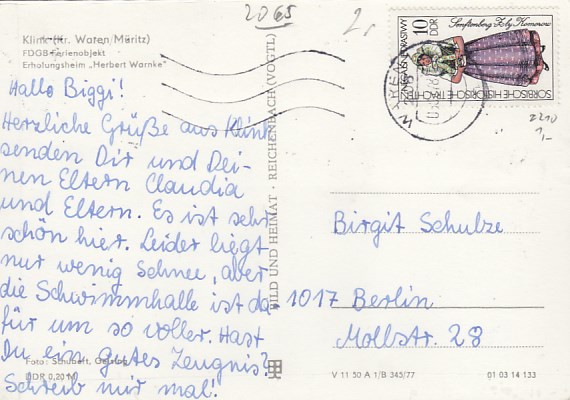 2065
2,-
Klink (Kr. Waren/Müritz)
FDGB-Ferienobjekt
Erholungsheim „Herbert Warnke"
Hallo Biggi!
Herzliche Grüße aus Klink
senden Dir und Dei-
nen Eltern Claudia
und Eltern. Es ist sehr
schön hier. Leider liegt
nur wenig Schnee, aber
die Schwimmhalle ist da-
für um so voller. Hast
Du ein gutes Zeugnis?
Schreib mir mal!
Foto: Schulfeft, Gelbing
DDR 0,20 M
BILD UND HEIMAT · REICHENBACH (VOGTL)
Senftenberg Zły Komorow
10 DDR
SORBISCHE HISTORISCHE TRACHTEN
WAREN
2210
1,-
Birgit Schulze
1017 Berlin
Mollstr. 28
V 11 50 A 1/B 345/77
01 03 14 133